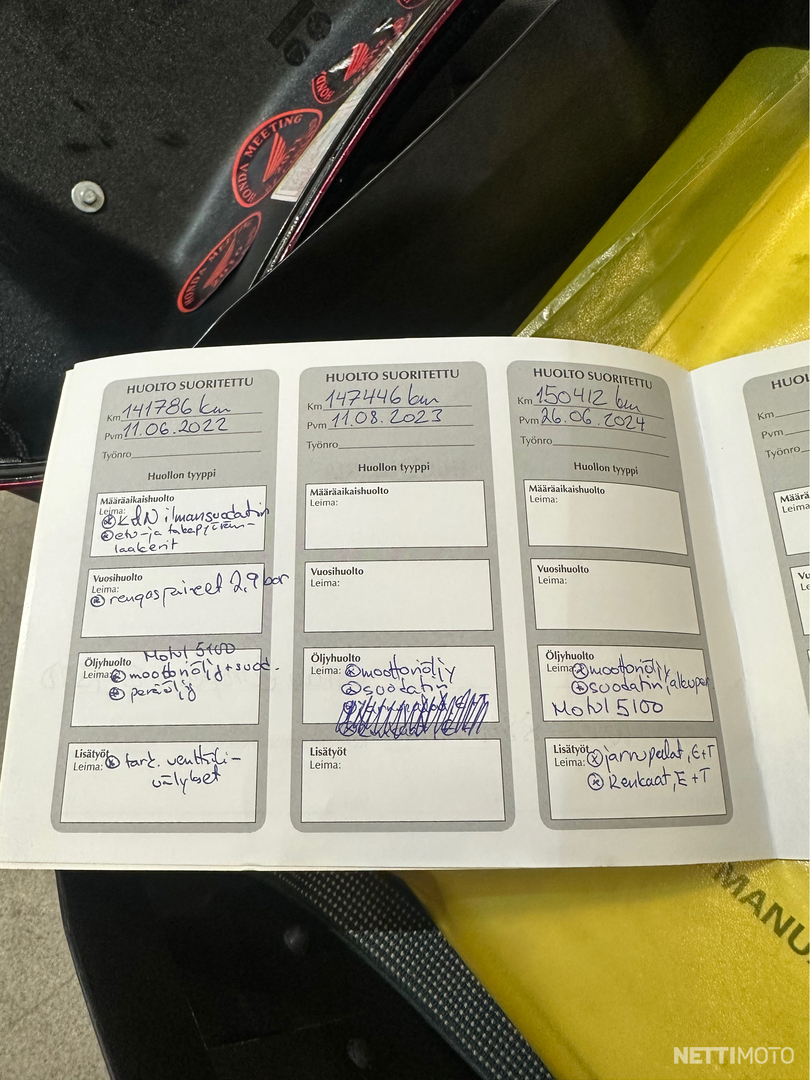 HONDA MEETING
HONDA MEETING
HUOLTO SUORITETTU
Km 141786 km
Pvm 11.06.2022
Työnro
Huollon tyyppi
Määräaikaishuolto
Leima:
K&N ilmansuodatin
etu- ja takapyörän-
laakerit
Vuosihuolto
Leima:
rengaspaineet 2,9 bar
Motul 5100
Öljyhuolto
Leima: moottoriöljy + suod.
peräöljy
Lisätyöt
Leima: tark. venttiili-
välykset
HUOLTO SUORITETTU
Km 147446 km
Pvm 11.08.2023
Työnro
Huollon tyyppi
Määräaikaishuolto
Leima:
Vuosihuolto
Leima:
Öljyhuolto
Leima: moottoriöljy
suodatin
Lisätyöt
Leima:
HUOLTO SUORITETTU
Km 150412 km
Pvm 26.06.2024
Työnro
Huollon tyyppi
Määräaikaishuolto
Leima:
Vuosihuolto
Leima:
Öljyhuolto
Leima: moottoriöljy
suodatin, alkuper
Motul 5100
Lisätyöt
Leima: jarrupalat, E+T
Renkaat, E+T
HUOL
Km
Pvm
Työnro
Leima:
Leima:
MANU
NETTIMOTO